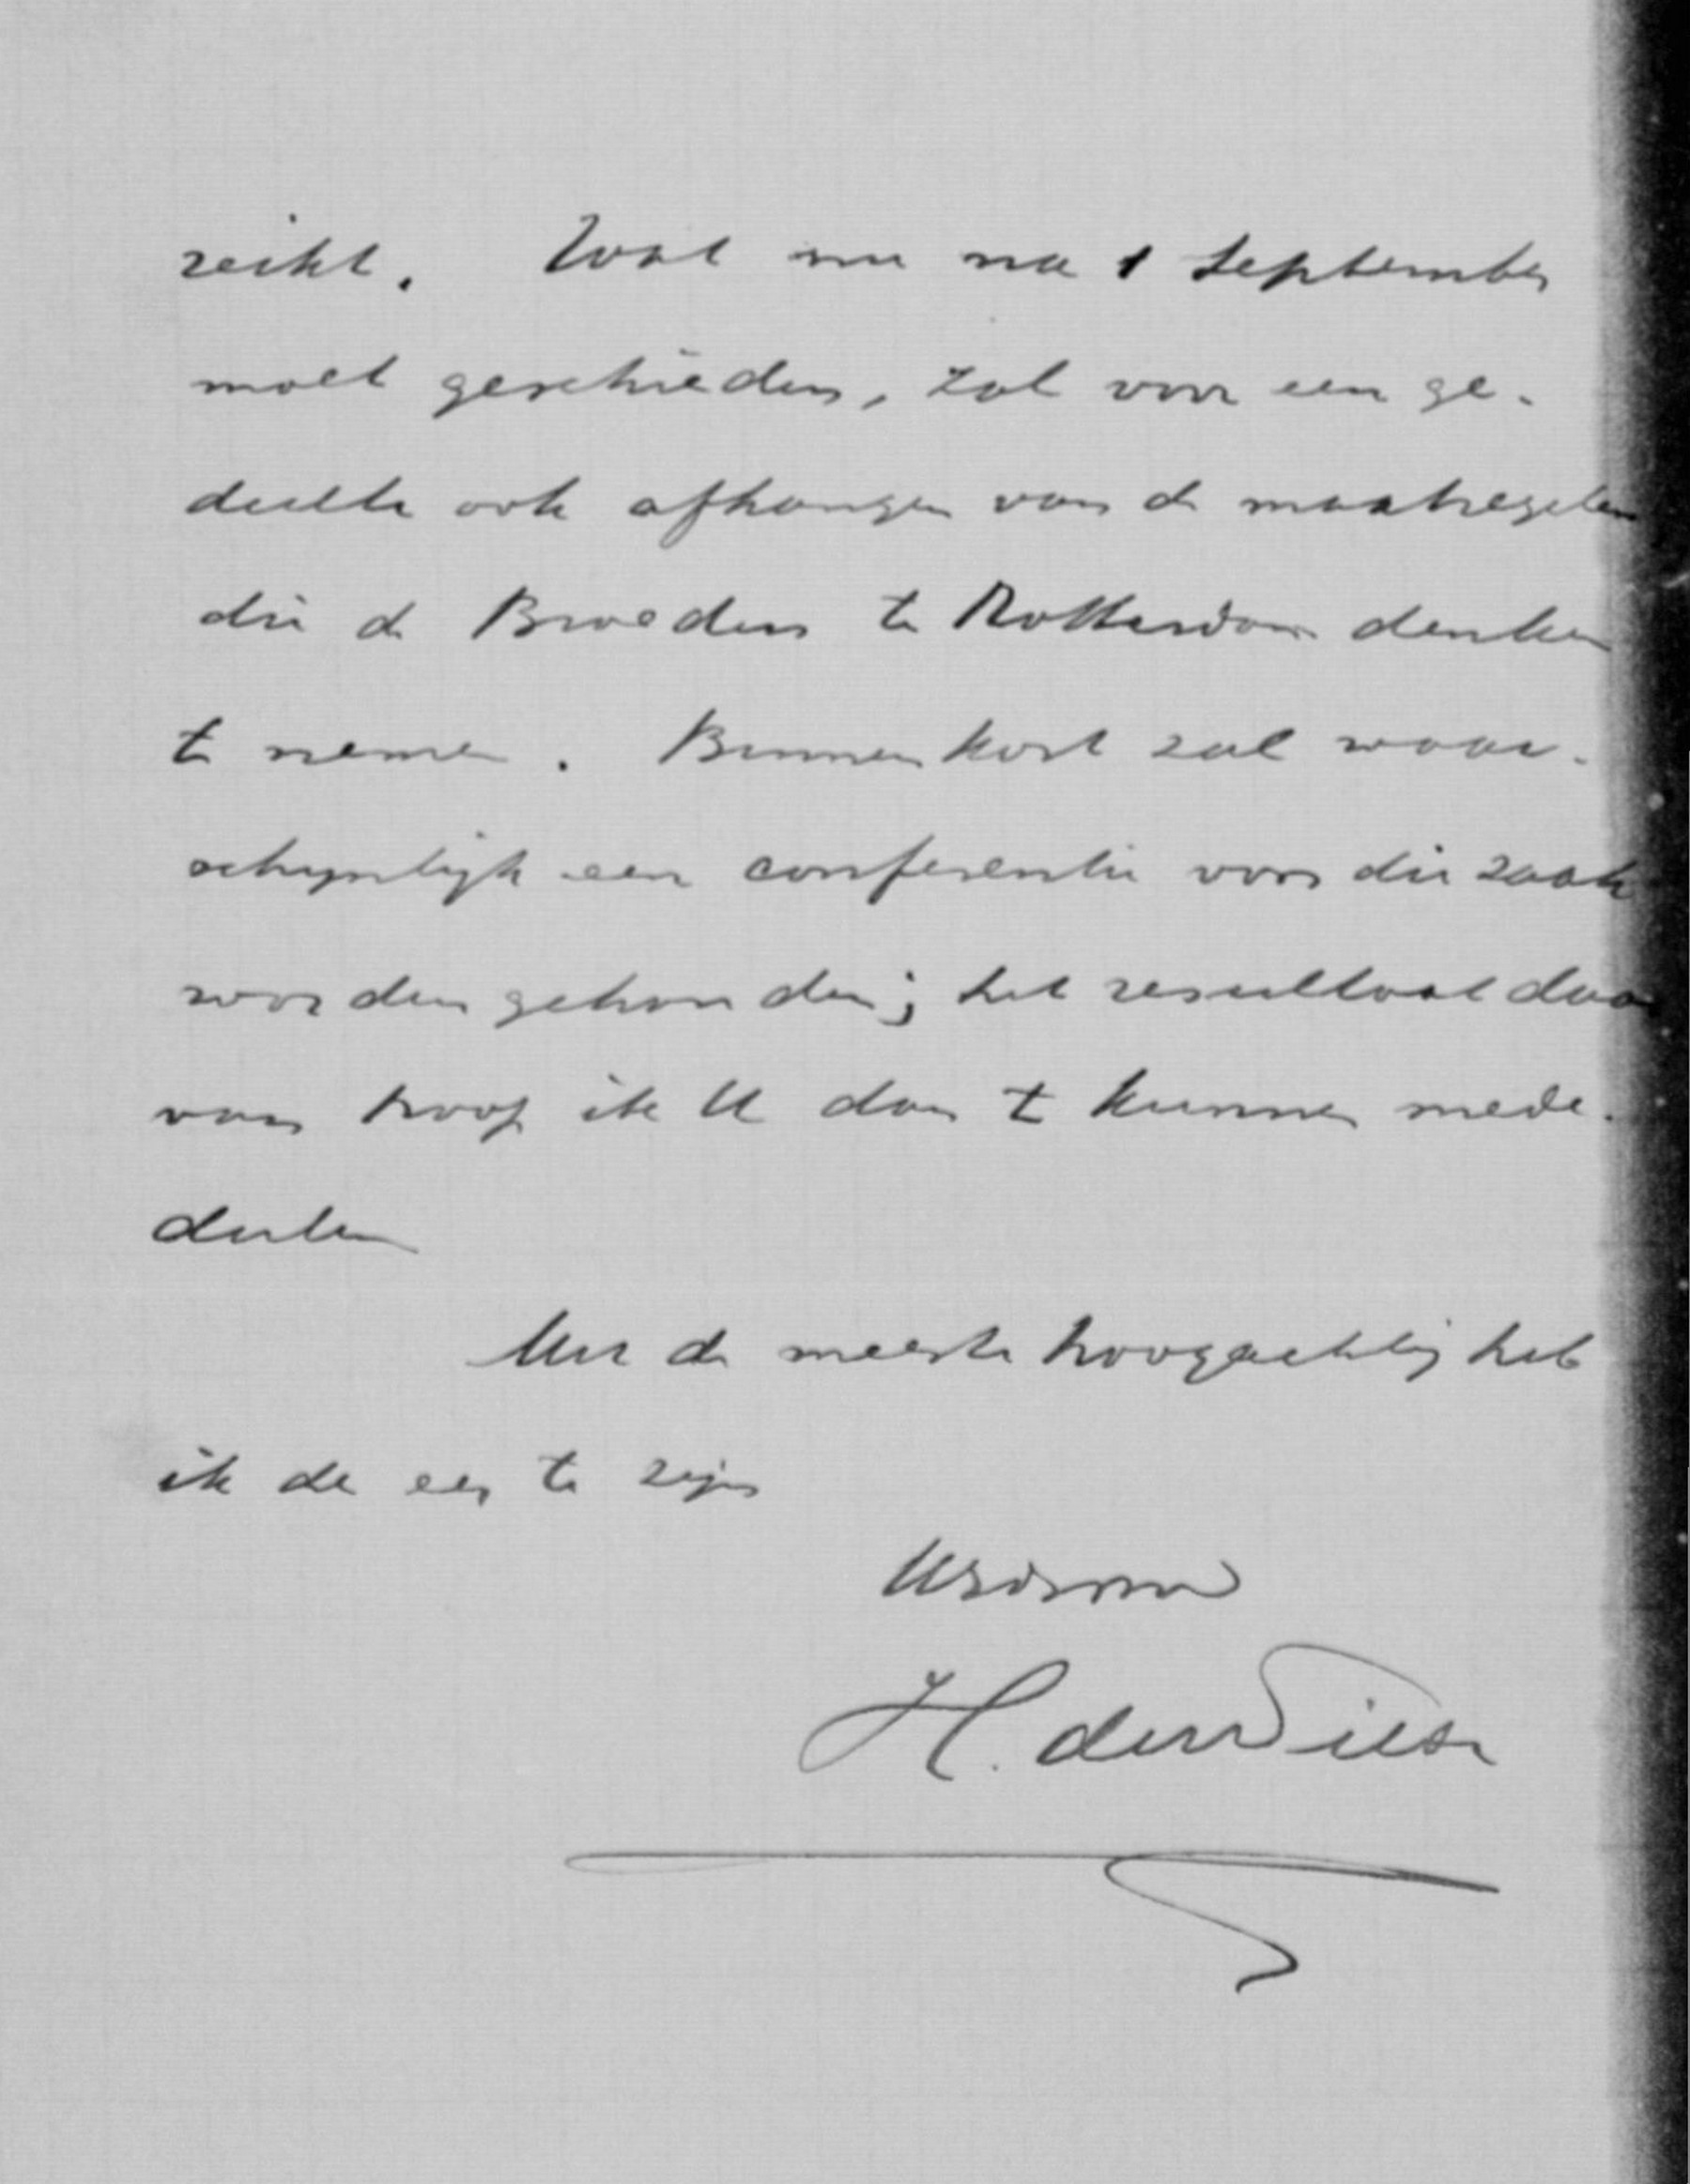 reikt. Wat nu na 1 September
moet geschieden, zal voor een ge-
deelte ook afhangen van de maatregelen
die de Broeders te Rotterdam denken
te nemen. Binnenkort zal waar-
schijnlijk een conferentie voor die zaak
worden gehouden; het resultaat daar
van hoop ik U dan te kunnen mede-
deelen
Met de meeste hoogachting heb
ik de eer te zijn
UEdDwnr
H.